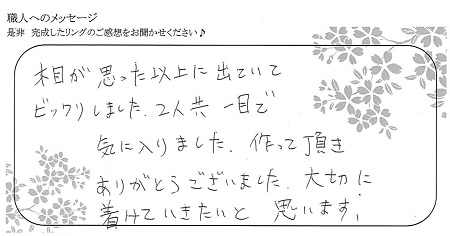 職人へのメッセージ
是非 完成したリングのご感想をお聞かせください♪
木目が思った以上に出ていて
ビックリしました.2人共一目で
気に入りました.作って頂き
ありがとうございました.大切に
着けていきたいと思います!